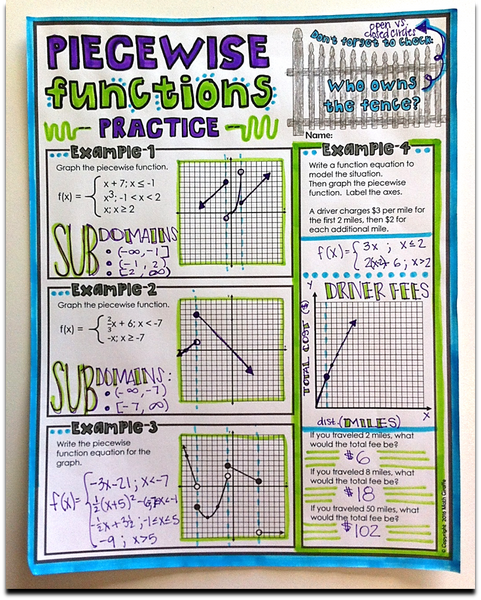 PIECEWISE
functions
PRACTICE
open vs.
closed circles
Don't forget to check:
Who owns
the fence?
Name:
Example-1
Graph the piecewise function.
f(x) =
x + 7; x ≤ -1
x³; -1 < x < 2
x; x ≥ 2
SUB DOMAINS
• (-∞, -1]
• (-1, 2)
• [2, ∞)
Example-2
Graph the piecewise function.
f(x) =
2/3 x + 6; x < -7
-x; x ≥ -7
SUB DOMAINS:
• (-∞, -7)
• [-7, ∞)
Example-3
Write the piecewise
function equation for the
graph.
f(x) =
-3x-21; x<-7
½(x+5)²
; -1≤x≤5
-9 ; x>5
Example-4
Write a function equation to
model the situation.
Then graph the piecewise
function. Label the axes.
A driver charges $3 per mile for
the first 2 miles, then $2 for
each additional mile.
f(x) =
3x ; x≤2
; x>2
DRIVER FEES
Y
TOTAL COST ($)
X
dist. (MILES)
If you traveled 2 miles, what
would the total fee be?
$6
If you traveled 8 miles, what
would the total fee be?
$18
If you traveled 50 miles, what
would the total fee be?
$102
© Copyright 2015 Math Giraffe